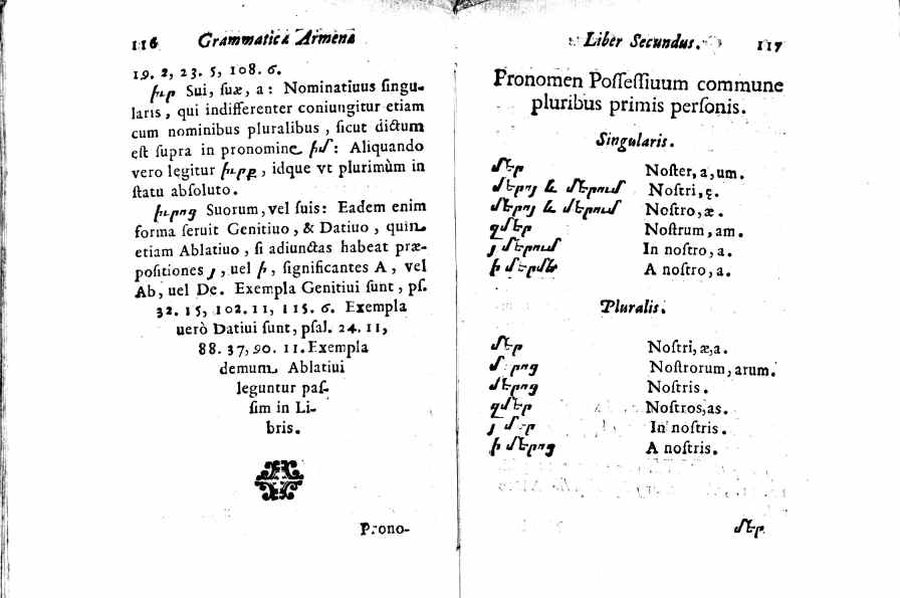 116 Grammatica Armena
19. 2, 23. 5, 108. 6.
իւր Sui, ſuæ, a : Nominatiuus ſingu-
laris, qui indifferenter coniungitur etiam
cum nominibus pluralibus, ſicut dictum
eſt ſupra in pronomine իմ : Aliquando
vero legitur իւրք, idque vt plurimùm in
ſtatu abſoluto.
իւրոց Suorum, vel ſuis: Eadem enim
forma ſeruit Genitiuo, & Datiuo, quin
etiam Ablatiuo, ſi adiunctas habeat præ-
poſitiones յ, uel ի, ſignificantes A, vel
Ab, uel De. Exempla Genitiui ſunt, pſ.
32. 15, 102. 11, 115. 6. Exempla
uerò Datiui ſunt, pſal. 24. 11,
88. 37, 90. 11. Exempla
demum Ablatiui
leguntur paſ-
ſim in Li-
bris.
Prono-
Liber Secundus. 117
Pronomen Poſſeſſiuum commune
pluribus primis perſonis.
Singularis.
մեր Noſter, a, um.
մերոյ և մերում Noſtri, ę.
մերոյ և մերում Noſtro, æ.
զմեր Noſtrum, am.
յ մերում In noſtro, a.
ի մերմէ A noſtro, a.
Pluralis.
մեր Noſtri, æ, a.
մերոց Noſtrorum, arum.
մերոց Noſtris.
զմեր Noſtros, as.
յ մեր In noſtris.
ի մերոց A noſtris.
մեր